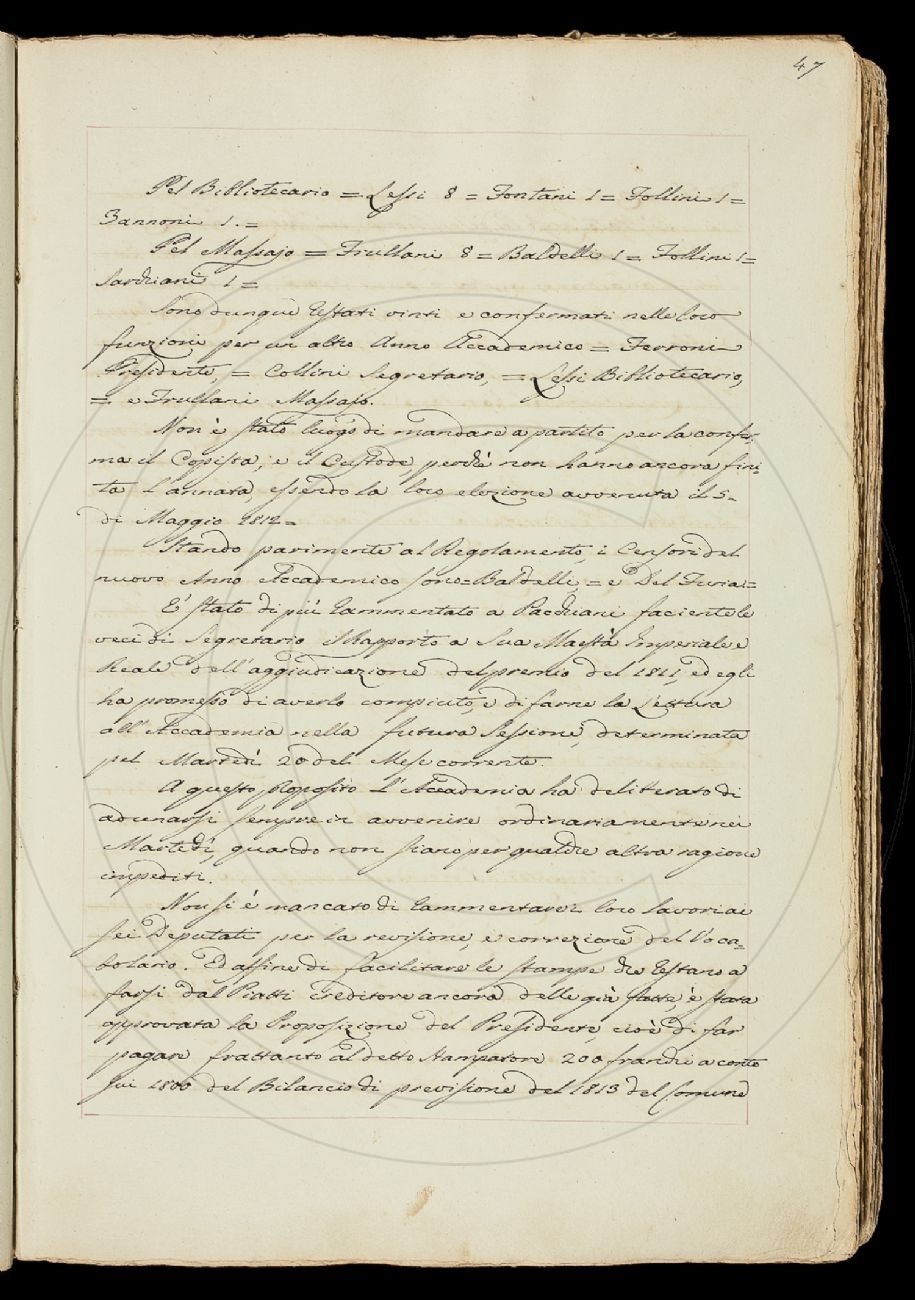 47
Pel Bibliotecario = Lessi 8 = Fontani 1 = Follini 1 =
Zannoni 1. =
Pel Massajo = Frullani 8 = Baldelli 1 = Follini 1 =
Sarchiani 1 =
Sono dunque restati vinti e confermati nelle loro
funzioni per un altro Anno Accademico = Ferroni
Presidente, = Collini Segretario, = Lessi Bibliotecario,
= e Frullani Massajo.
Non è stato luogo di mandare a partito per la confer-
ma il Copista, e il Custode, perchè non hanno ancora fini-
ta l'annata essendo la loro elezione avvenuta il 5.
di Maggio 1812 =
Stando parimente al Regolamento, i Censori del
nuovo Anno Accademico sono = Baldelli, = e Del Furia =
E' stato di più rammentato a Sarchiani facente le
veci di Segretario il Rapporto a Sua Maestà Imperiale e
Reale dell'aggiudicazione del premio del 1811, ed egli
ha promesso di averlo compiuto, e di farne la Lettura
all'Accademia nella futura Sessione, determinata
pel Martedì 20 del Mese corrente.
A questo proposito l'Accademia ha deliberato di
adunarsi sempre in avvenire ordinariamente nei
Martedì, quando non siano per qualche altra ragione
impediti.
Non si è mancato di rammentare i loro lavori ai
sei Deputati per la revisione, e correzione del Voca-
bolario. Ed affine di facilitare le stampe che restano a
farsi dal Piatti creditore ancora delle già fatte, è stata
approvata la Proposizione del Presidente, cioè di far
pagare frattanto al detto Stampatore 200 franchi a conto
sui 1800 del Bilancio di previsione del 1813 del Comune